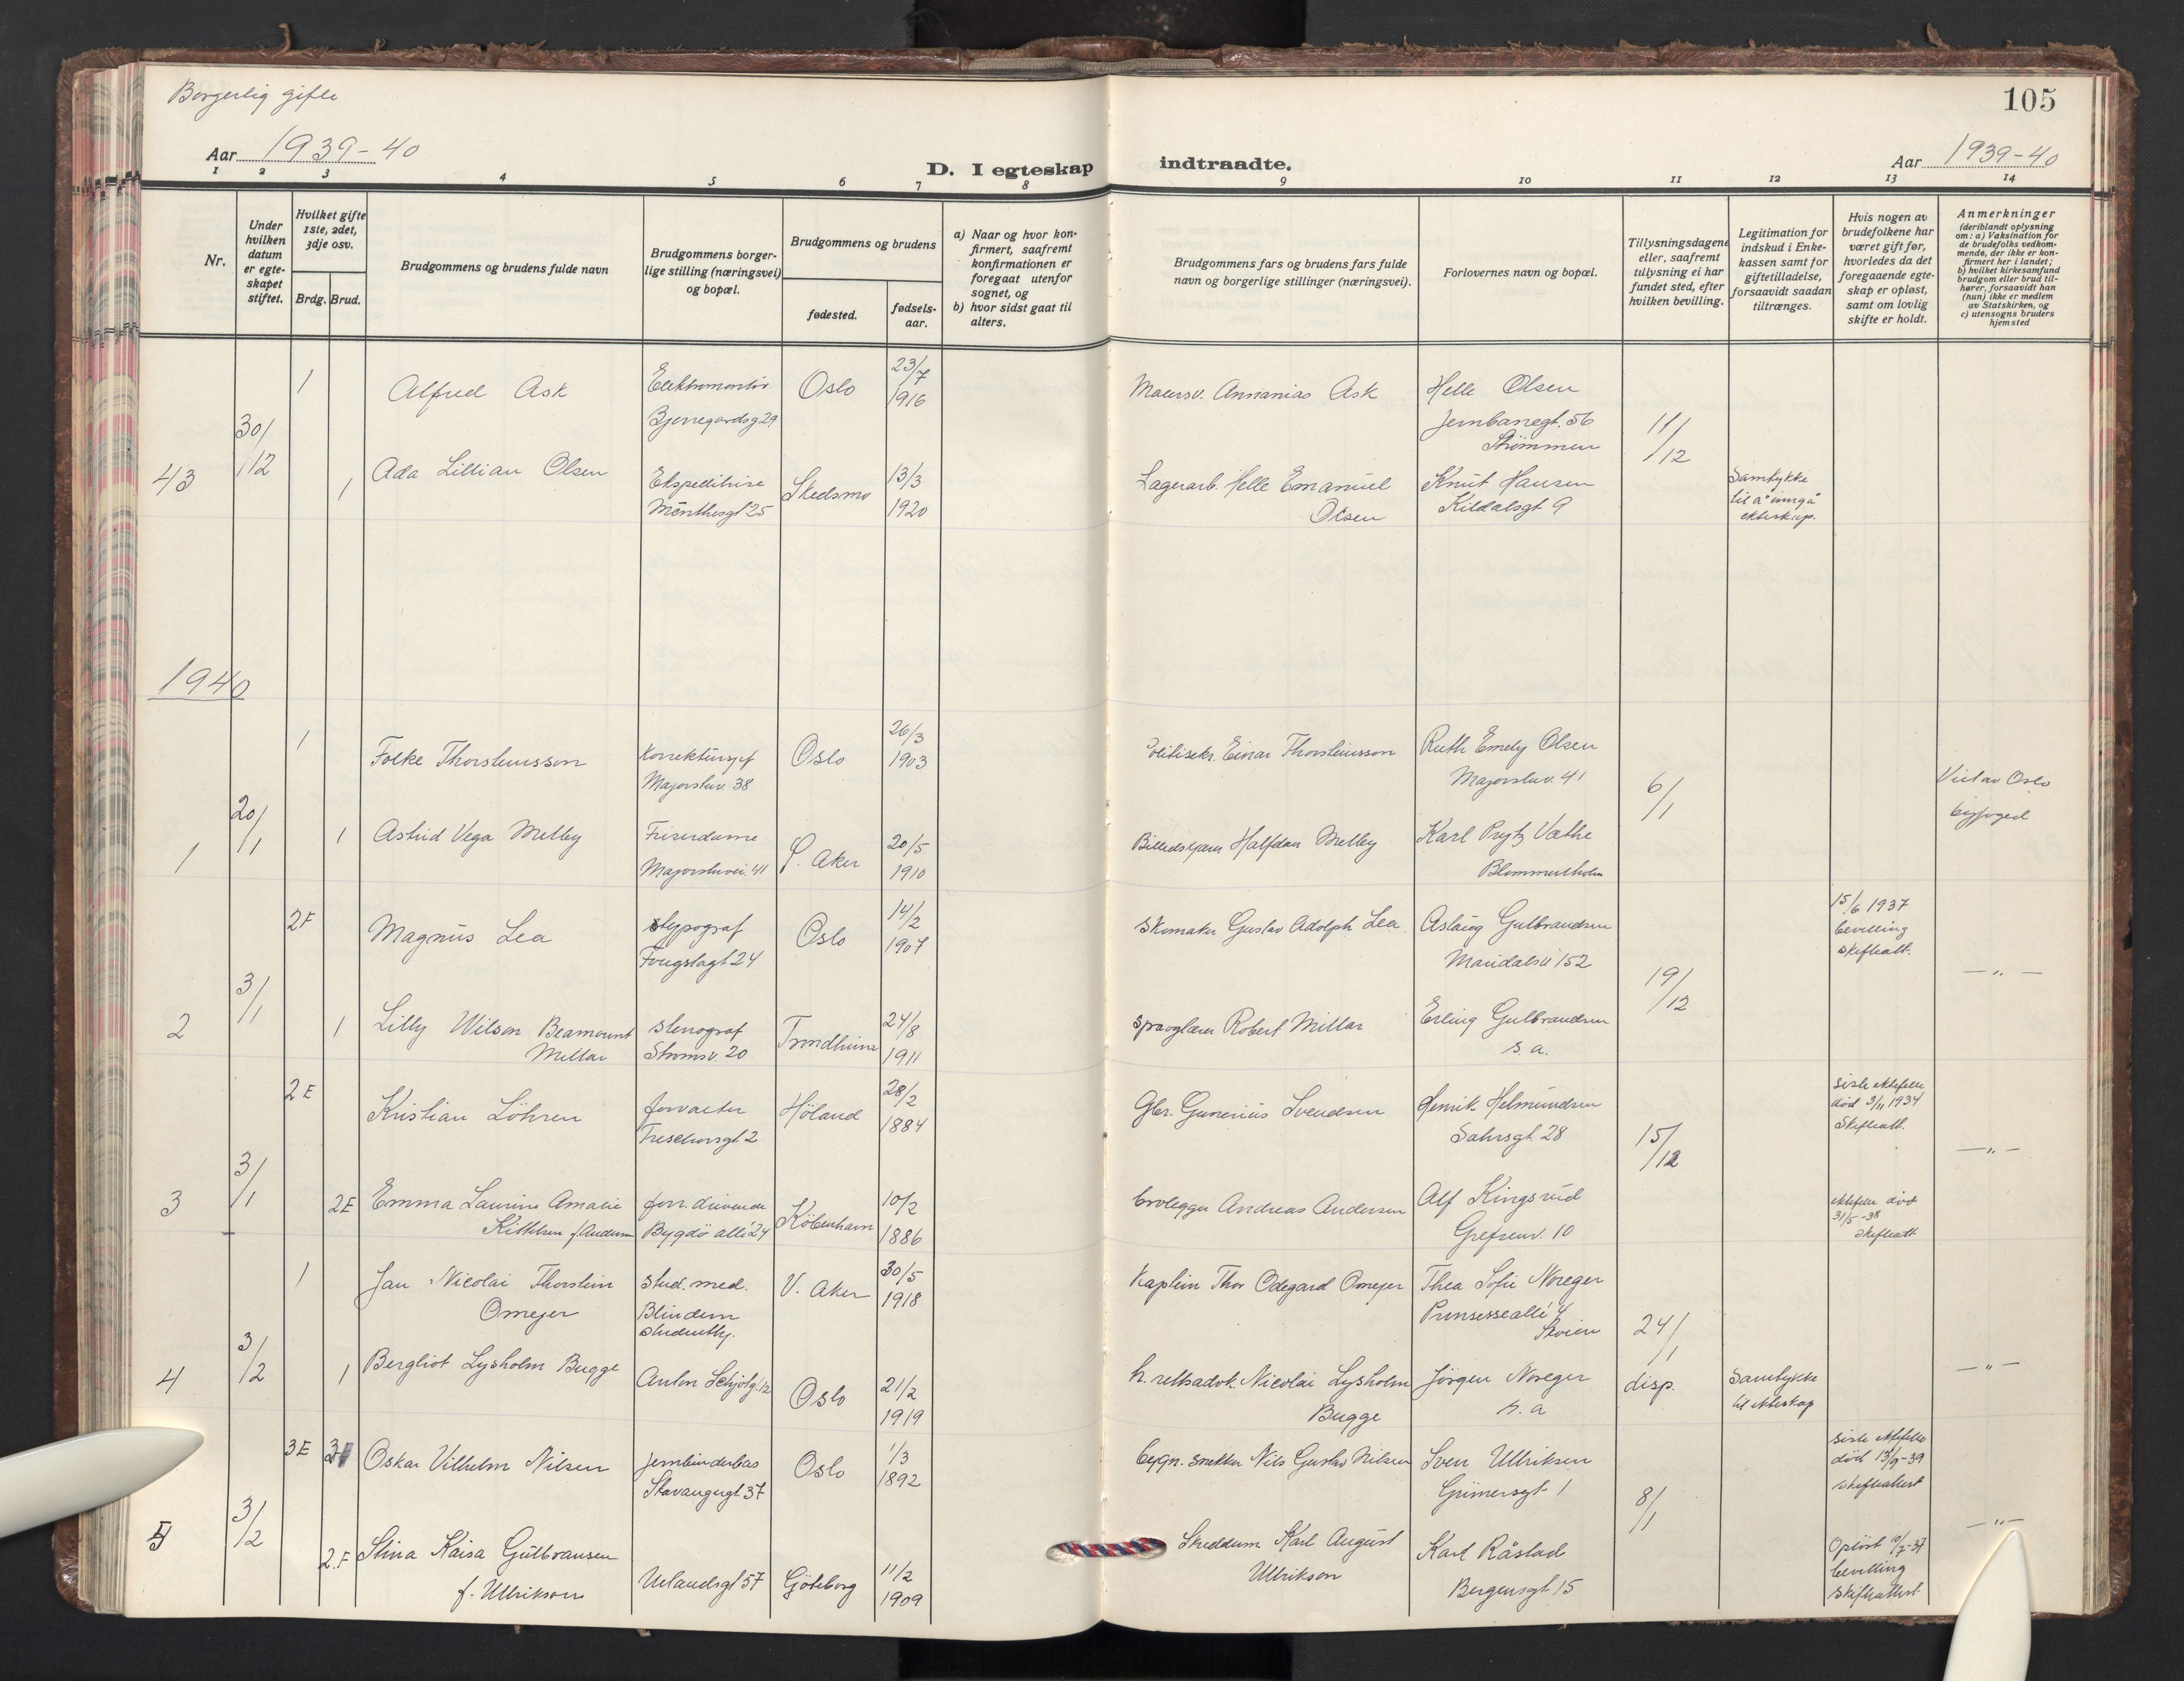 Borgerlig gifte
Aar 1939-40
D. I egteskap
indtraadte.
Aar 1939-40
105
1 2 3 4 5 6 7 8 9 10 11 12 13 14
Nr.
Under hvilken datum er egteskapet stiftet.
Hvilket gifte 1ste, 2det, 3dje osv.
Brdg. Brud.
Brudgommens og brudens fulde navn
Brudgommens borgerlige stilling (næringsvei) og bopæl.
Brudgommens og brudens
fødested.
fødselsaar.
a) Naar og hvor konfirmert, saafremt konfirmationen er foregaat utenfor sognet, og
b) hvor sidst gaat til alters.
Brudgommens fars og brudens fars fulde navn og borgerlige stillinger (næringsvei).
Forlovernes navn og bopæl.
Tillysningsdagene eller, saafremt tillysning ei har fundet sted, efter hvilken bevilling.
Legitimation for indskud i Enkekassen samt for giftetilladelse, forsaavidt saadan tiltrænges.
Hvis nogen av brudefolkene har været gift før, hvorledes da det foregaaende egteskap er opløst, samt om lovlig skifte er holdt.
Anmerkninger (deriblandt oplysning om: a) Vaksination for de brudefolks vedkommende, der ikke er konfirmert her i landet; b) hvilket kirkesamfund brudgom eller brud tilhører, forsaavidt han (hun) ikke er medlem av Statskirken, og c) utensogns bruders hjemsted
43 30/12
1 Alfred Ask Elektromontör Bjerregardsg 29 Oslo 23/7 1916 Ananias Ask Helle Olsen Jernbanegt. 56 Strømmen 11/12
1 Ada Lillian Olsen Ekspeditrise Mönthesgt 25 Skedsmo 13/3 1920 Lagerarb. Helle Emanuel Olsen Knut Hansen Kildalsgt 9 Samtykke til å inngå ekteskap.
1940
1 20/1
1 Folke Thorsteinsson Korrekturgjef Majorstuv. 38 Oslo 26/3 1903 Einar Thorsteinsson Ruth Emely Olsen Majorstuv. 41 6/1 Viet av Oslo byfoged
1 Astrid Vega Melby Friserdame Majorstuvei. 41 Ö. Aker 20/5 1910 Halfdan Melby Karl Prytz Vathe Blommenholm
2 3/1
2F Magnus Lea stypograf Fougstagt. 24 Oslo 14/2 1907 Skomaker Gustav Adolph Lea Aslaug Gulbrandsen Maridalsv 152 19/12 15/6 1937 bevilling skifteatt. — " —
1 Lilly Wilson Beamount Millar stenograf Stromsv. 20 Trondheim 24/8 1911 Språglærer Robert Millar Erling Gulbrandsen s. a.
3 3/1
2E Kristian Löhren forvalter Treschowsgt. 2 Höland 28/2 1884 Gbr. Gunerius Svendsen Henrik Helmundsen Sahrsgt. 28 15/12 siste ektefelle död 3/11 1934 Skifteatt. — " —
2E Emma Laurine Amalie Kittelsen f. Andersen forr. drivende Bygdö allé 24 Köbenhavn 10/2 1886 brolegger Andreas Andersen Alf Kingsrud Grefsenv. 10 ektefelle död 31/5 -38 skifteatt
4 3/2
1 Jan Nicolai Thorstein Omejer stud. med. Blindern studentby. V. Aker 30/5 1918 Kaptein Thor Odegard Omejer Thea Sofie Noreger Prinsessealle 4 Skøien 24/1 disp.
1 Bergliot Lysholm Bugge Anton Schjötg. 12 Oslo 21/2 1919 h. rettsadvok. Nicolai Lysholm Bugge Jörgen Noreger s. a Samtykke til ekteskap — " —
5 3/2
3E Oskar Vilhelm Nilsen Jernbinderbas Stavangergt 37 Oslo 1/3 1892 bygn. snekker Nils Gustav Nilsen Sven Ullriksen Grimersgt 1 8/1 siste ektefelle död 13/9-39 skifteattest
2.F Stina Kaisa Gulbransen f. Ullrikson Uelandsgt 57 Göteborg 11/2 1909 Karl August Ullrikson Karl Råstad Bergensgt 15 Oplöst 10/7-37 bevilling skifteattest — " —